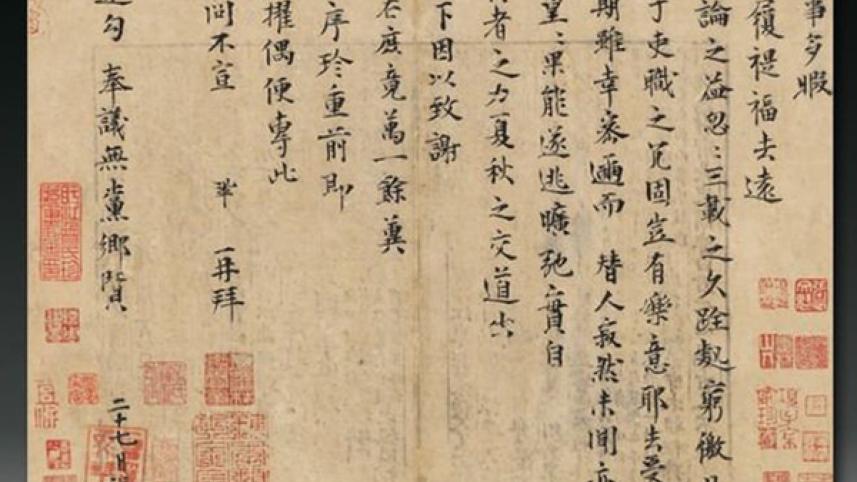 事多暇
履褆福去遠
論之益忽:三載之久跧處窮徼日
于吏職之冗固豈有樂意耶去受
期雖幸密邇而替人寂然未聞亦
望:果能遂逃曠弛實自
者之力夏秋之交道出
下因以致謝
右庶竟萬一餘冀
序珍重前即
擢偶便專此
問不宣 鞏 再拜
勾奉議無黨鄉賢
二十七日